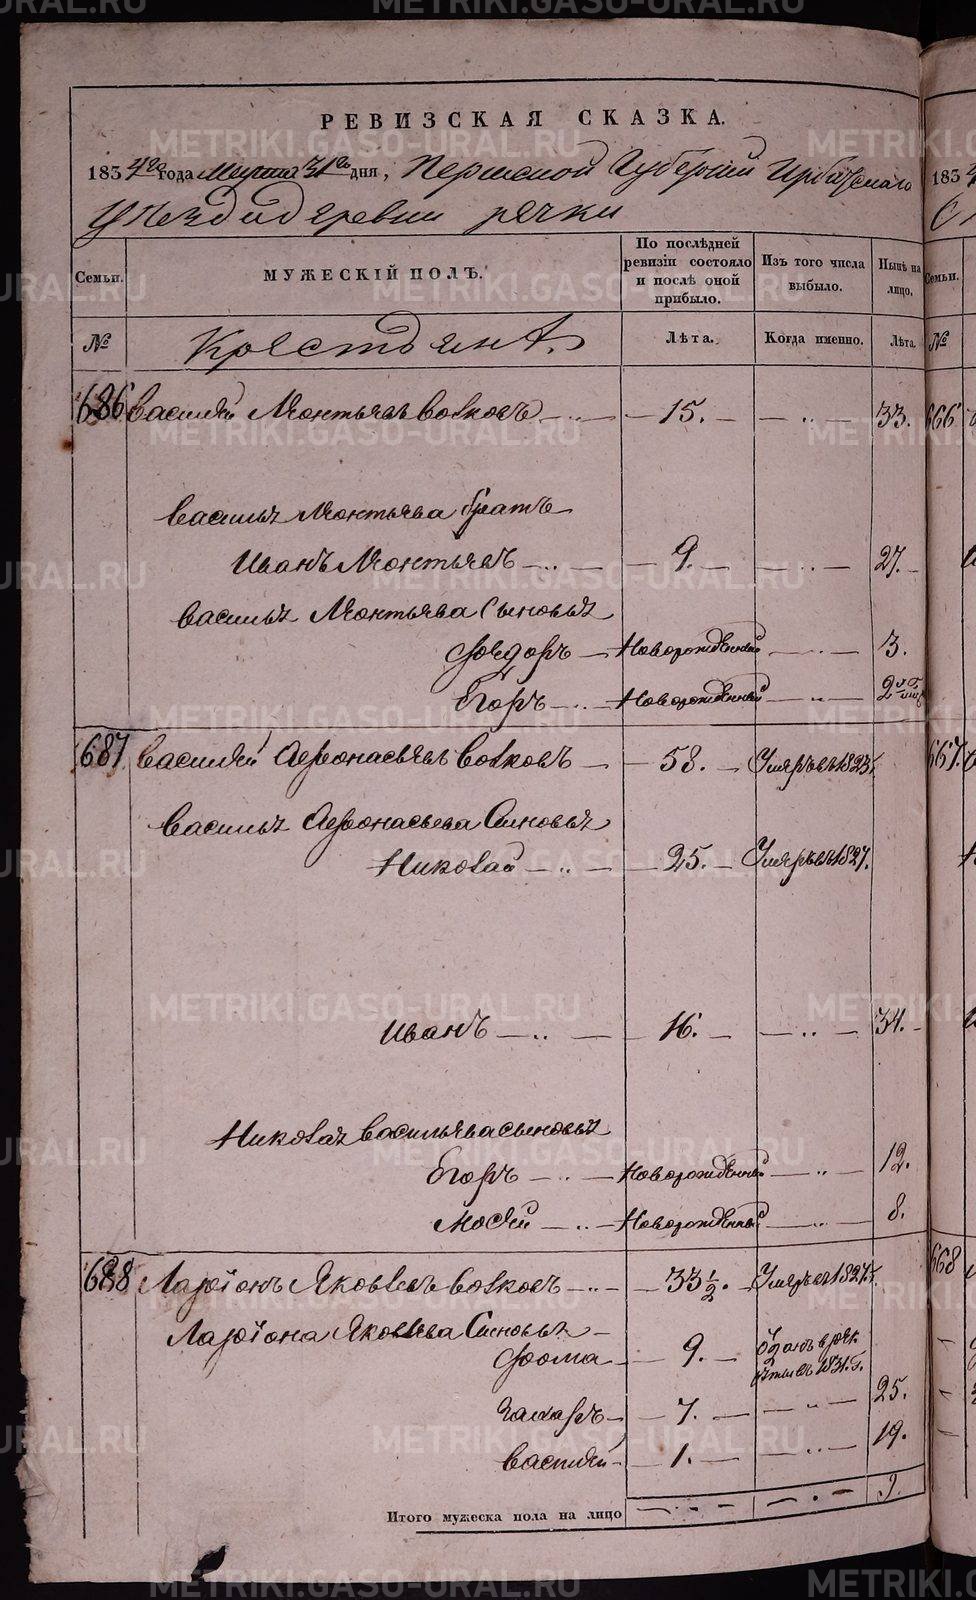 РЕВИЗСКАЯ СКАЗКА.
1834го года Марта 31го дня, Пермской Губернии Ирбитскаго
Уезда деревни речки
Семьи. МУЖЕСКІЙ ПОЛЪ. По послѣдней ревизіи состояло и послѣ оной прибыло. Изъ того числа выбыло. Нынѣ на лицо. Семьи.
№ Крестьяна. Лѣта. Когда именно. Лѣта. №
686 Василий Мокиѣвъ Волковъ 15. 33. 666
Василья Мокиѣва братъ
Иванъ Мокиѣвъ 9. 27.
Василья Мокиѣва сыновья
Фѣдоръ Новорожденный 3.
Егоръ Новорожденный 2
687 Василий Афонасьевъ Волковъ 58. Умѣръ въ 1823г. 667
Василья Афонасьева Сыновья
Николай 25. Умѣръ въ 1827.
Иванъ 16. 34.
Николая Васильѣва сыновья
Егоръ Новорожденный 12.
Мосѣй Новорожденный 8.
688 Ларіонъ Яковлевъ Волковъ 33 1/2. Умѣръ въ 1827г. 668
Ларіона Яковлева Сыновья
Фома 9. Отданъ в рек
1831 г.
Захаръ 7. 25.
Василий 1. 19.
Итого мужеска пола на лицо 9.
METRIKI.GASO-URAL.RU